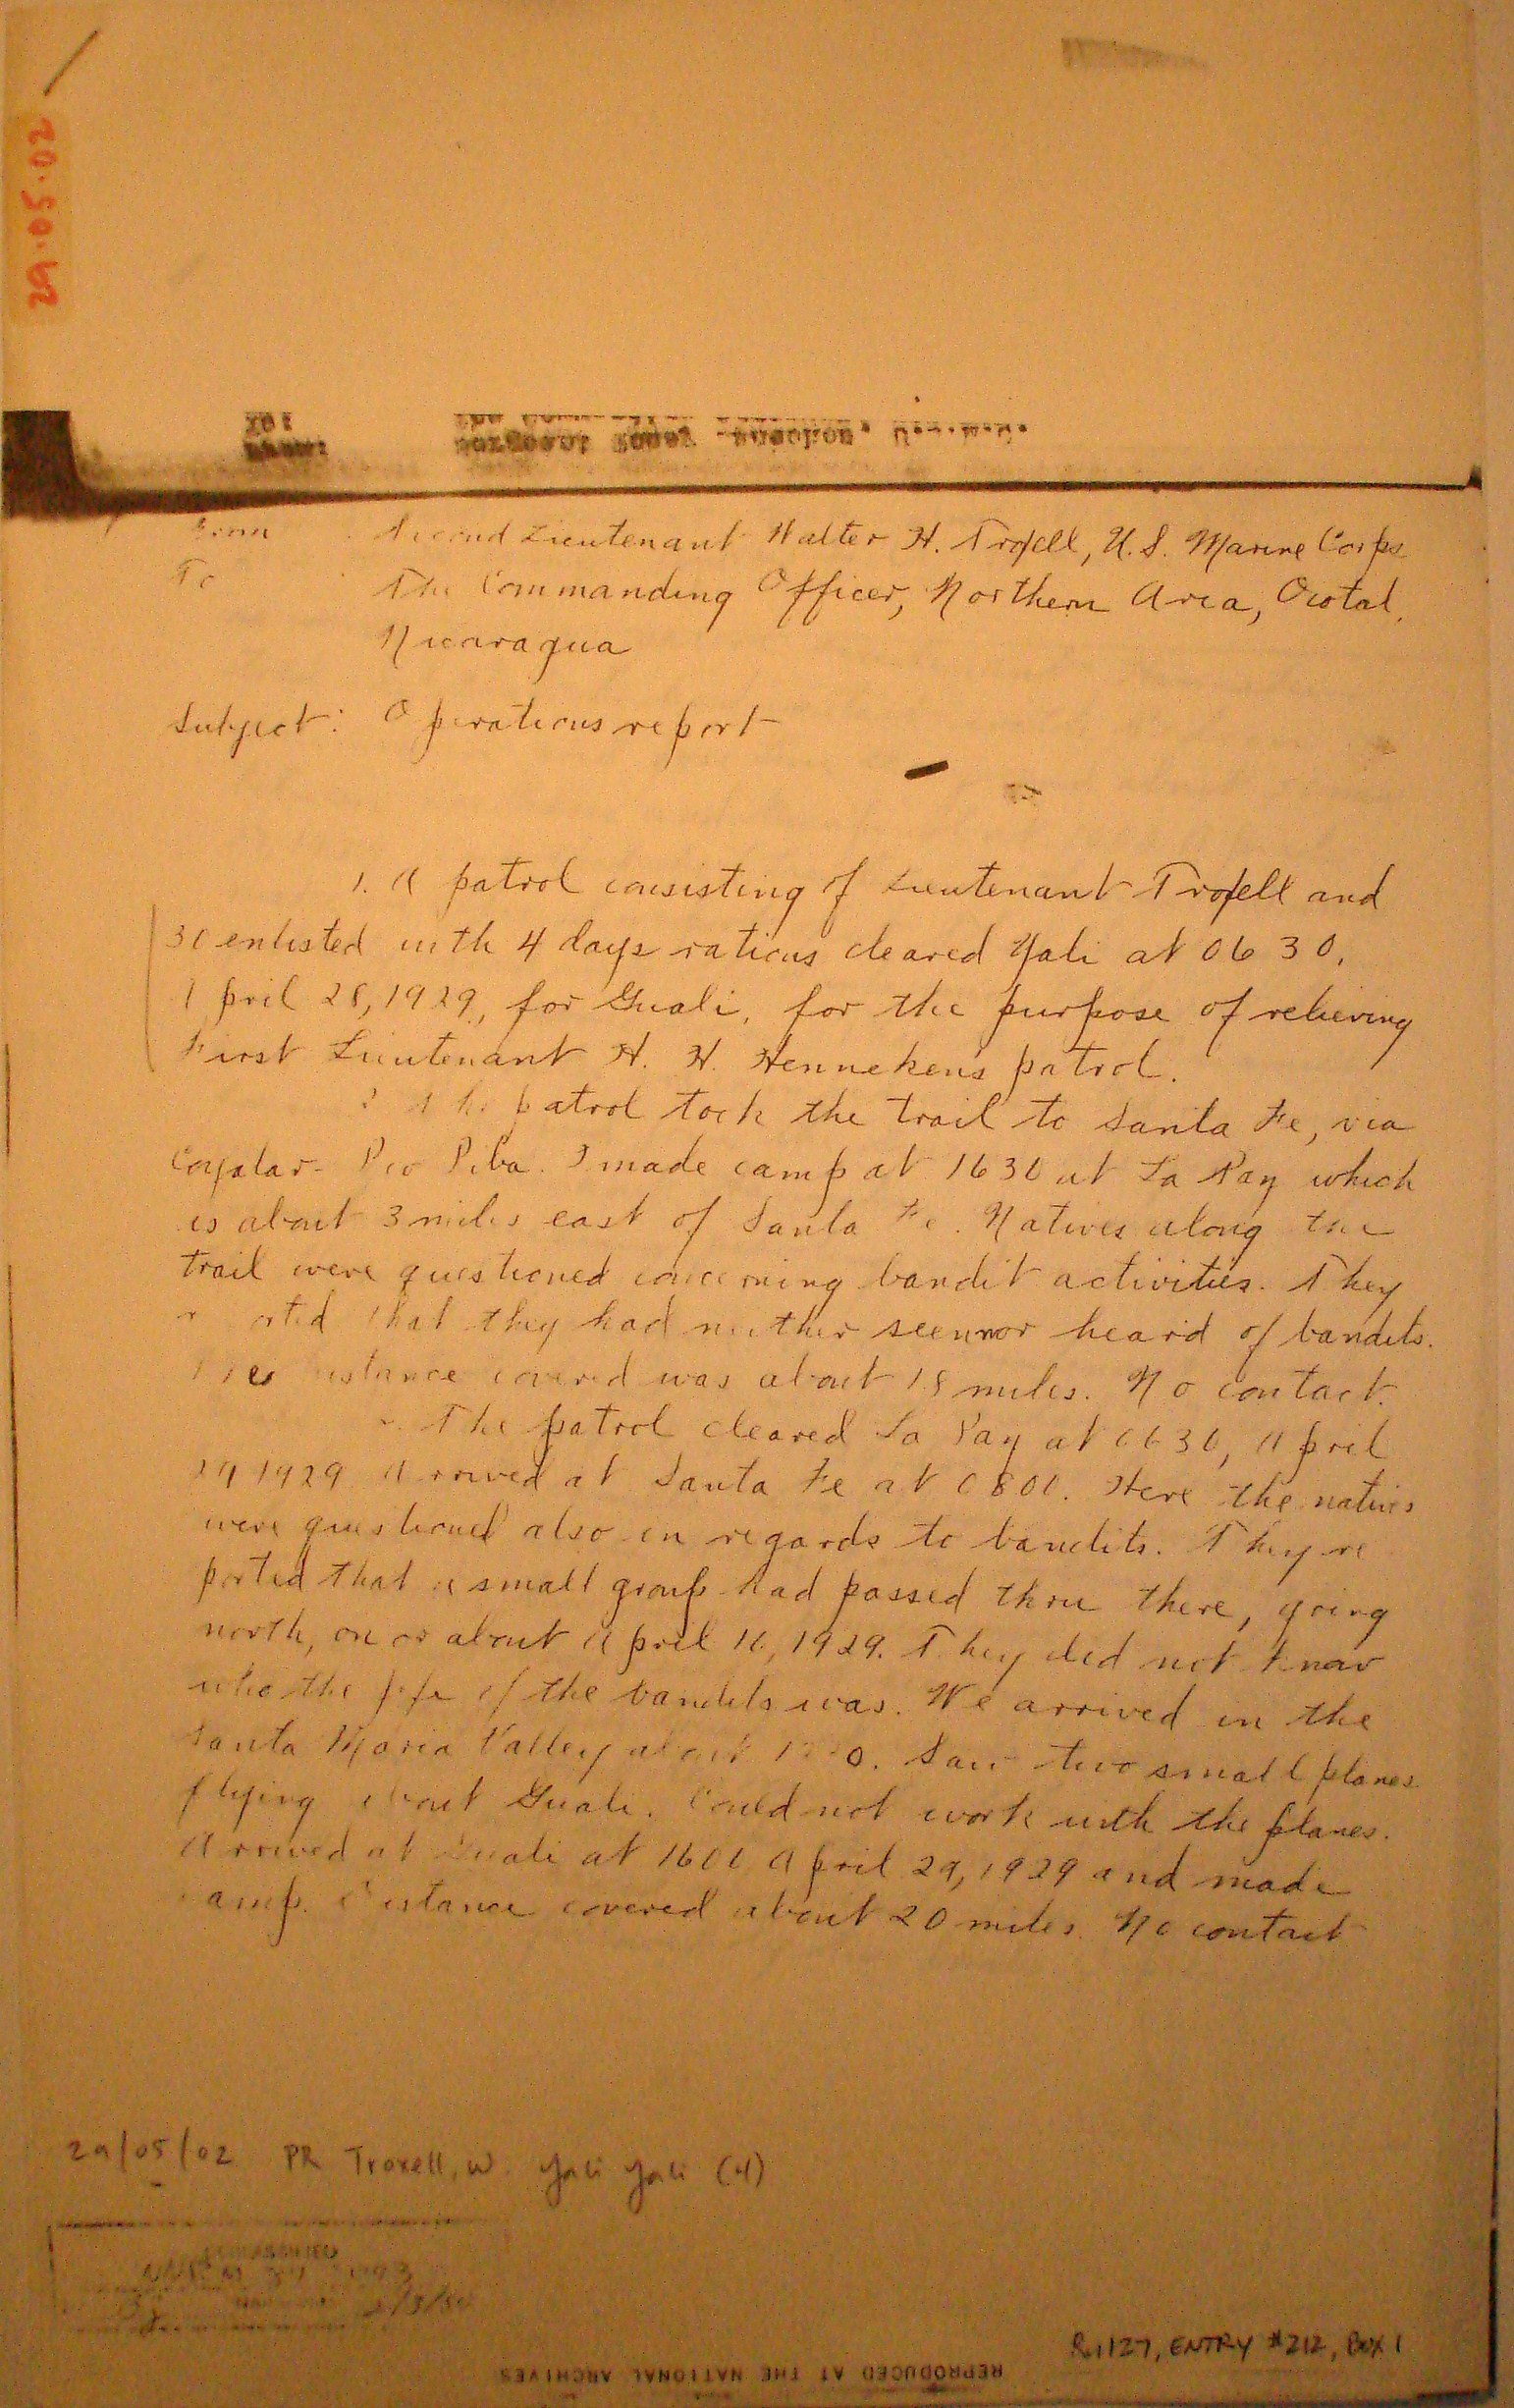 29.05.02
From : Second Lieutenant Walter H. Troxell, U.S. Marine Corps
To : The Commanding Officer, Northern Area, Ocotal,
Nicaragua
Subject: Operations report
1. A patrol consisting of Lieutenant Troxell and
30 enlisted with 4 days rations cleared Yali at 0630,
April 28, 1929, for Guali, for the purpose of relieving
First Lieutenant H. H. Hanneken's patrol.
2 The patrol took the trail to Santa Fe, via
Coyolar - made camp at 1630 at La Pay which
is about 3 miles east of Santa Fe. Natives along the
trail were questioned concerning bandit activities. They
reported that they had neither seen nor heard of bandits.
The distance covered was about 18 miles. No contact.
The patrol cleared La Pay at 0630, April
29 1929 Arrived at Santa Fe at 0800. Here the natives
were questioned also in regards to bandits. They re
ported that a small group had passed thru there, going
north, on or about April 16, 1929. They did not know
who the jefe of the bandits was. We arrived in the
Santa Maria Valley about Saw two small planes
flying about Guali. Could not work with the planes.
Arrived at Guali at 1600 April 29, 1929 and made
camp. Distance covered about 20 miles. No contact
29/05/02 PR Troxell, W. Yali Yali (4)
DECLASSIFIED
RG127, ENTRY #212, BOX 1
REPRODUCED AT THE NATIONAL ARCHIVES